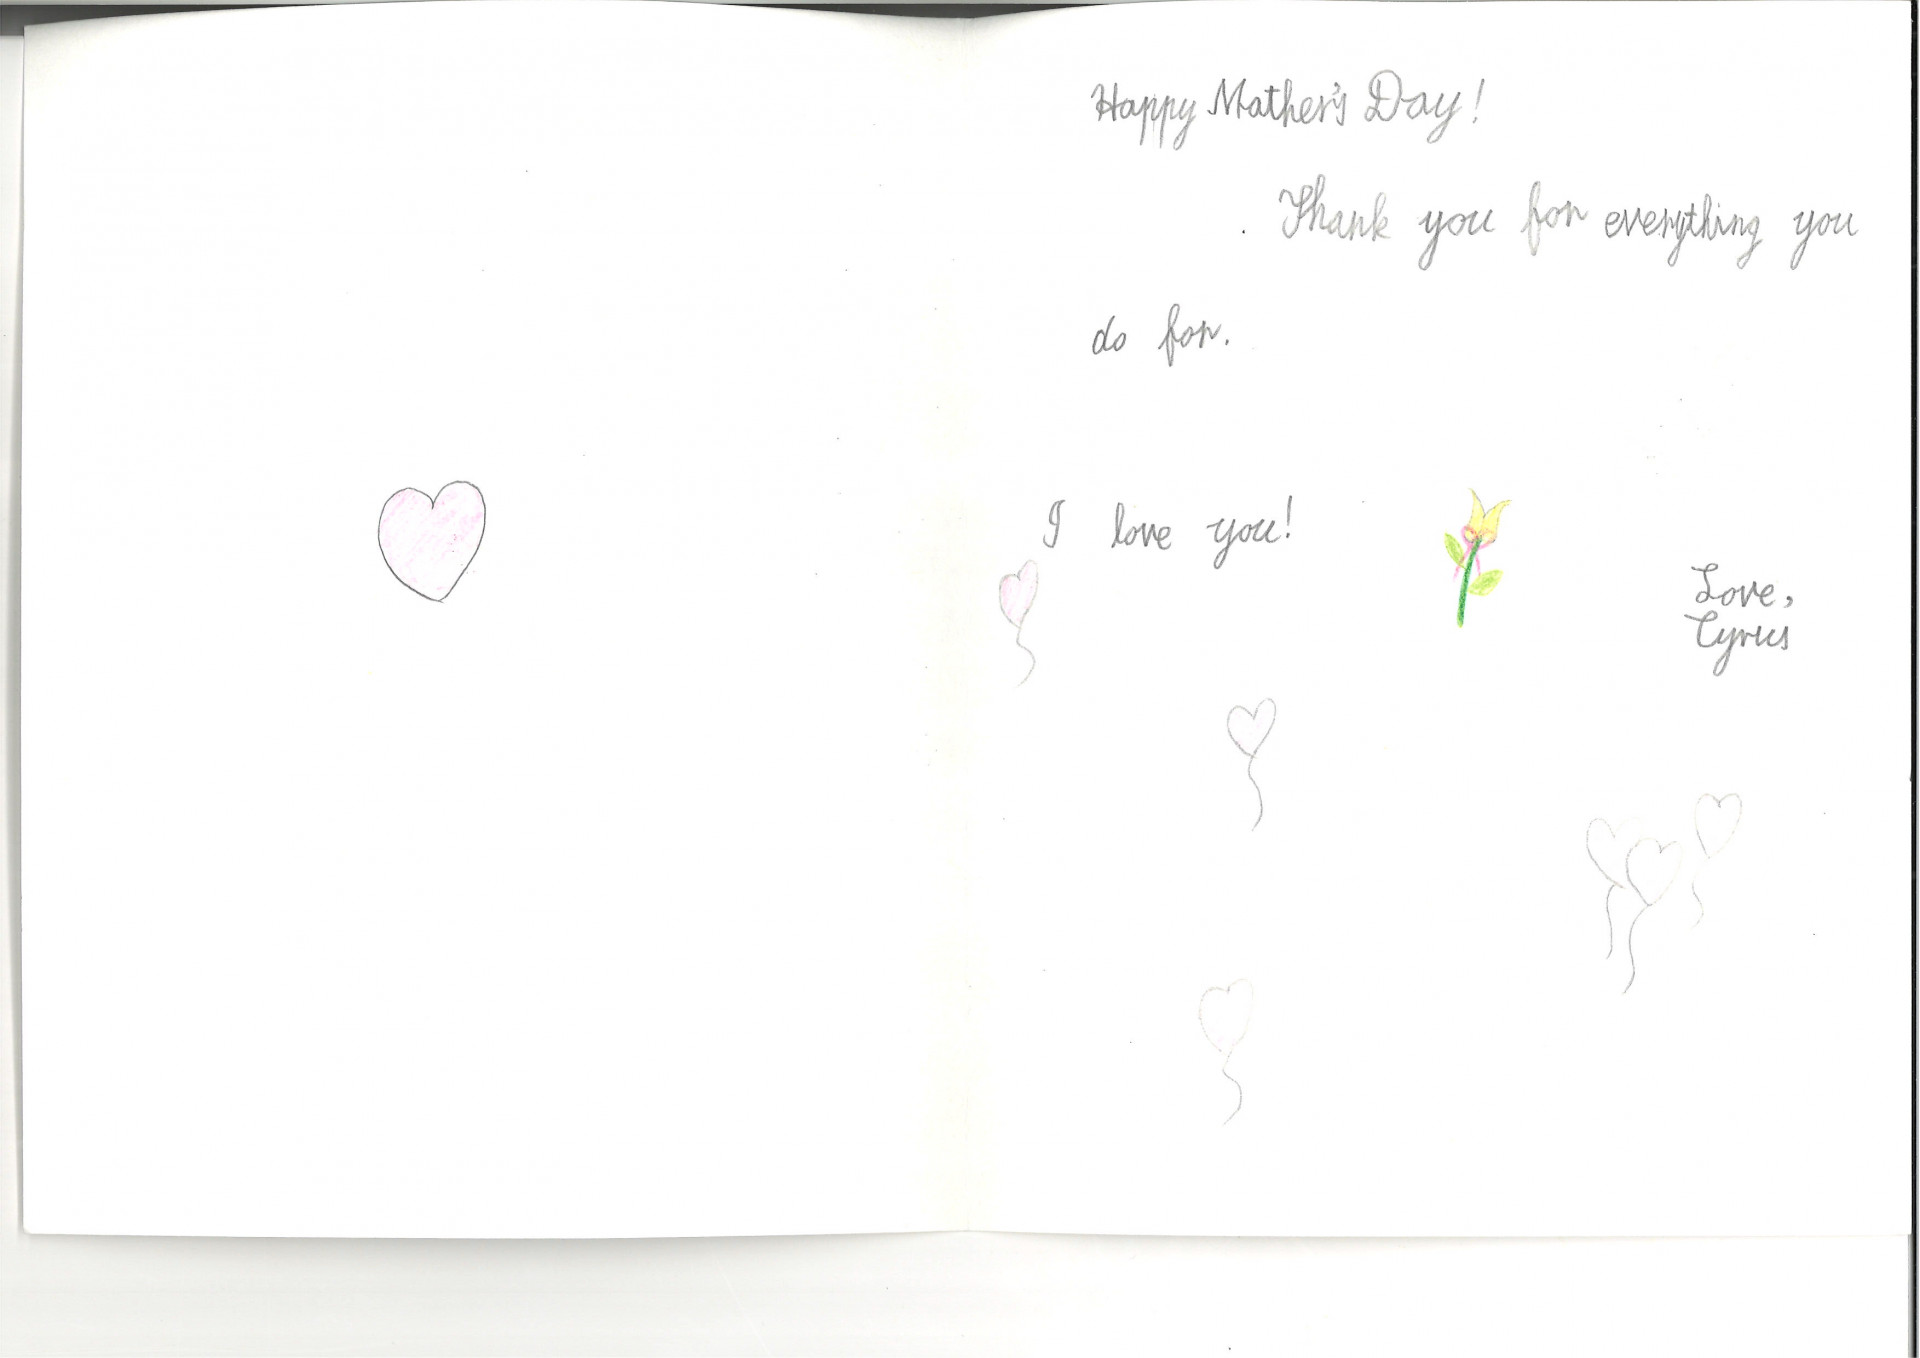 Happy Mother's Day!
Thank you for everything you
do for.
I love you!
Love,
Cyrus